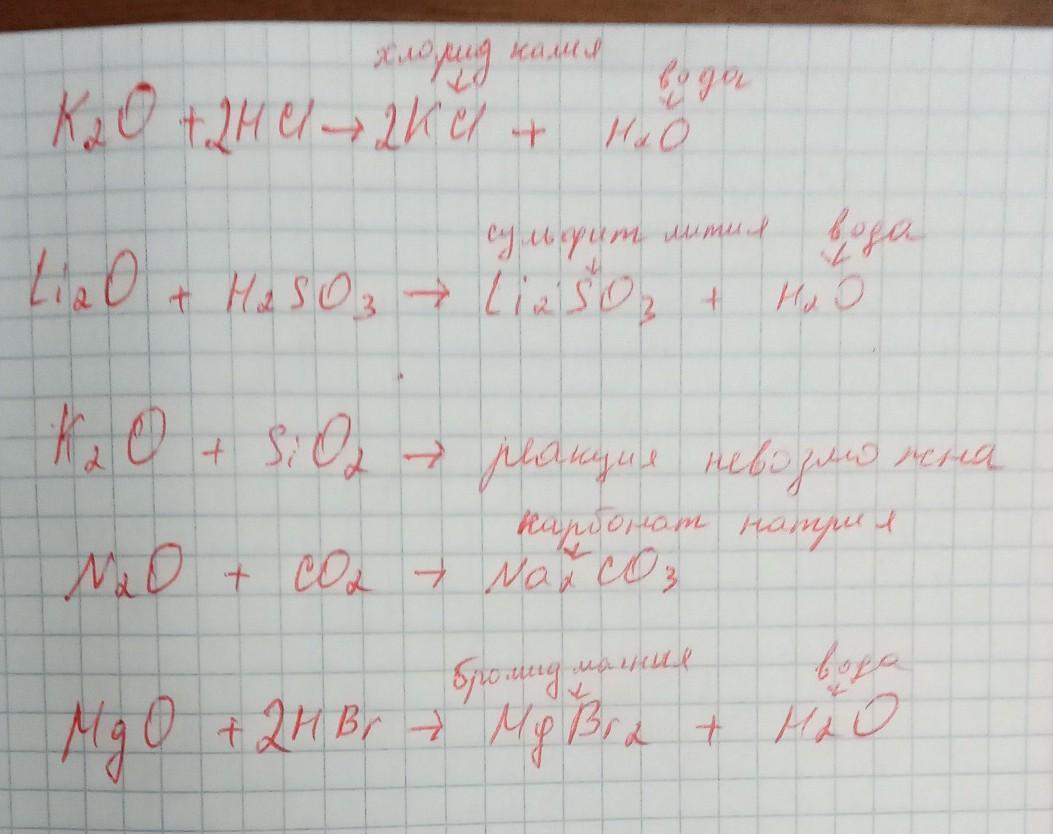 хлорид калия вода
K₂O + 2HCl → 2KCl + H₂O
сульфит лития вода
Li₂O + H₂SO₃ → Li₂SO₃ + H₂O
K₂O + SiO₂ → реакция невозможна
карбонат натрия
N₂O + CO₂ → Na₂CO₃
бромид магния вода
MgO + 2HBr → MgBr₂ + H₂O